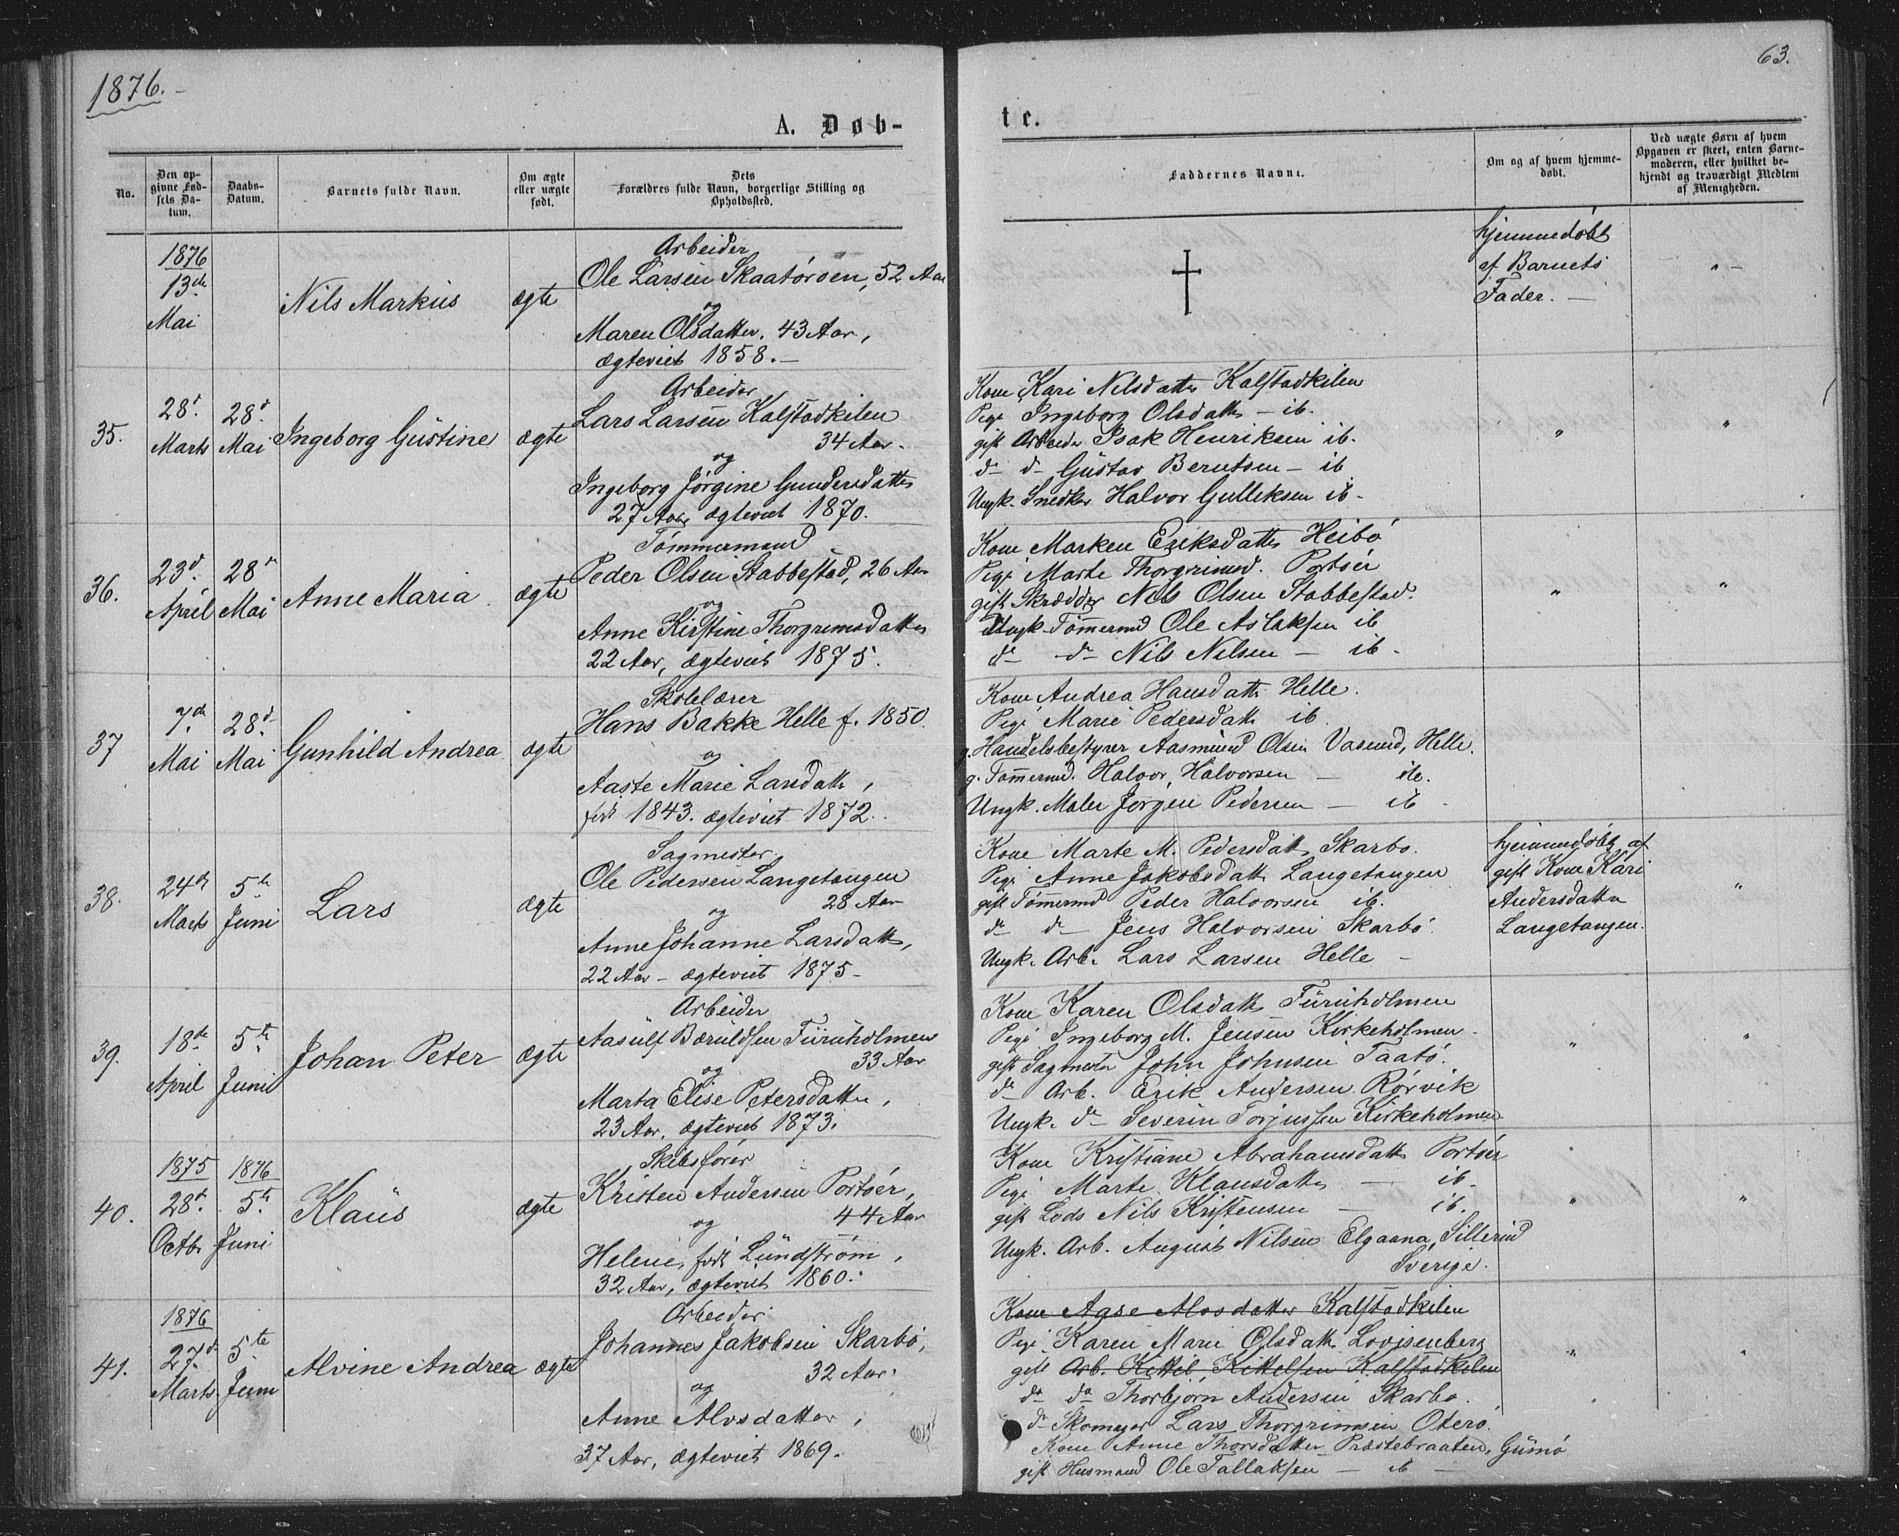 1876.
63.
A. Døb-
te.
No.
Den op-
givne Fød-
sels Da-
tum.
Daabs-
Datum.
Barnets fulde Navn.
Om ægte
eller uægte
født.
Dets
Forældres fulde Navn, borgerlige Stilling og
Opholdssted.
Faddernes Navne.
Om og af hvem hjemme-
døbt.
Ved uægte Børn af hvem
Opgaven er skeet, enten Barne-
moderen, eller hvilket be-
kjendt og troværdigt Medlem
af Menigheden.
1876
13de
Mai
Nils Markus
ægte
Arbeider
Ole Larsen Skaatøroen, 52 Aar
og
Maren Olsdatter. 43 Aar,
ægteviet 1858. —
†
hjemmedøbt
af Barnets
Fader. —
" —
35.
28d.
Marts
28d.
Mai
Ingeborg Gustine
ægte
Arbeider
Lars Larsen Kalstadkilen
34 Aar.
og
Ingeborg Jørgine Gundersdatter
27 Aar, ægteviet 1870.
Kone Kari Nilsdatter Kalstadkilen
Pige Ingeborg Olsdatter — ib.
gift Arbeider Isak Henriksen ib.
do do Gustav Berntsen — ib
Ungk. Snedker Halvor Gulliksen ib.
"
"
36.
23d.
April
28d
Mai
Anne Maria
ægte
Tømmermand
Peder Olsen Stabbestad, 26 Aar
og
Anne Kirstine Thorgrimsdatter
22 Aar, ægteviet 1875.
Kone Marken Eriksdatter Heibø
Pige Marte Thorgrimsd. Portøer
gift Skrædder Nils Olsen Stabbestad.
Ungk. Tømermd Ole Aslaksen ib
do do Nils Nilsen — ib.
"
"
37
7de
Mai
28d.
Mai
Gunhild Andrea
ægte
Skolelærer
Hans Bakke Helle f. 1850.
og
Aaste Marie Larsdatter,
født 1843. ægteviet 1872.
Kone Andrea Hansdatter Helle.
Pige Marie Pedersdatter ib.
g. Handelsbestyrer Aasmund Olsen Vasund, Helle.
g. Tømermd. Halvor Halvorsen — ib.
Ungk. Maler Jørgen Pedersen — ib
38.
24de
Marts
5te
Juni
Lars
ægte
Sagmester
Ole Pedersen Langetangen
28 Aar
og
Anne Johanne Larsdatter,
22 Aar — ægteviet 1875 —
Kone Marte M. Pedersdatter Skarbo.
Pige Anne Jakobsdatter Langetangen
gift Tømermd Peder Halvorsen ib.
do do Jens Halvorsen Skarbø.
Ungk. Arb. Lars Larsen Helle —
hjemmedøbt af
gift Kone Kari
Andersdatter
Langetangen.
"
39.
18de
April
5te
Juni
Johan Peter
ægte
Arbeider
Aasulf Bæruldsen Furuholmen
33 Aar
og
Marta Elise Petersdatter,
23 Aar, ægteviet 1873.
Kone Karen Olsdatter Furuholmen
Pige Ingeborg M. Jensen Kirkeholmen.
gift Sagmester John Johnsen Taatø.
do Arb. Erik Andersen Rørvik
Ungk. do Severin Torjussen Kirkeholmen
"
"
40.
1875
28d.
Octbr
1876
5te
Juni
Klaus
ægte
Skibsfører
Kristen Andersen Portøer,
44 Aar
og
Helene, født Lundstrøm,
32 Aar, ægteviet 1860.
Kone Kristiane Abrahamsdatter Portøer
Pige Marte Klausdatter — ib.
gift Lods Nils Kristensen — ib.
Ungk. Arb. August Nilsen Elgaana, Sillerud
Sverige.
"
"
41.
1876
27d.
Marts
5te
Juni
Alvine Andrea
ægte
Arbeider
Johannes Jakobsen Skarbø,
32 Aar.
og
Anne Alvsdatter,
37 Aar, ægteviet 1869.
Kone Aase Alvsdatter Kalstadkilen
Pige Karen Marie Olsdatter Lovisenberg
gift Arb. Kittil Kittelsen Kalstadkilen
do do Thorbjørn Andersen Skarbo.
do Skomager Lars Thorgrimsen Oterø.
Kone Anne Thorsdatter Præstebraaten, Gumø
gift Husmand Ole Tallaksen — ib —
"
"